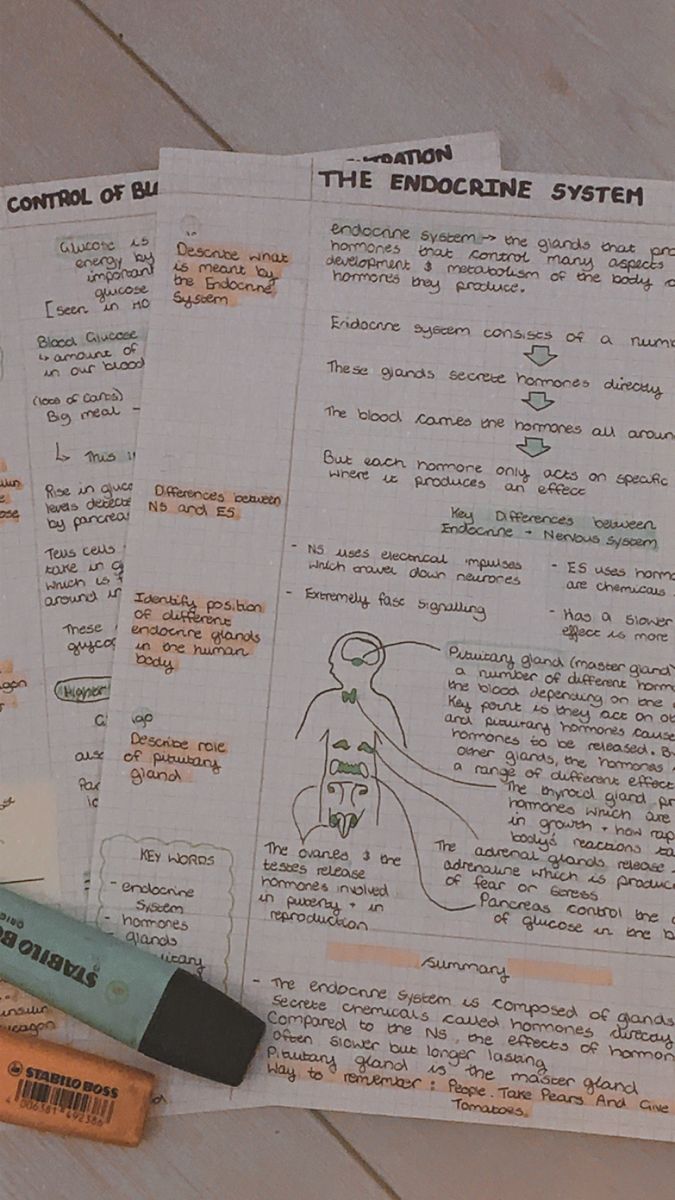 CONTROL OF BL
Glucose is
energy by
important
glucose
[seen in
Blood Glucose
↳ amount of
in our blood
(lots of carbs)
Big meal -
↳ This i
Rise in gluco
levels detecte
by pancrea
Tells cells
take in g
which is
around in
These
glycog
Higher
TRATION
THE ENDOCRINE SYSTEM
Describe what
is meant by
the Endocrine
System
Differences between
NS and ES
Identify position
of different
endocrine glands
in the human
body
Describe role
of pituitary
gland
KEY WORDS
- endocrine
system
- hormones
- glands
endocrine system → the glands that pro
hormones that control many aspects
development & metabolism of the body
hormones they produce.
Endocrine system consists of a num
These glands secrete hormones directly
The blood carries the hormones all aroun
But each hormone only acts on specific
where it produces an effect
Key Differences between
Endocrine + Nervous System
- NS uses electrical impulses
which travel down neurones
- Extremely fast signalling
- ES uses hormo
are chemicals
- Has a slower
effect is more
Pituitary gland (master gland)
a number of different horm
the blood depending on the
Key point is they act on ot
and pituitary hormones cause
hormones to be released. B
other glands, the hormones
a range of different effect
The thyroid gland pr
hormones which are
in growth + how rap
body's reactions ta
The adrenal glands release
adrenaline which is produc
of fear or stress
Pancreas control the
of glucose in the b
The ovaries & the
testes release
hormones involved
in puberty + in
reproduction
Summary
- The endocrine system is composed of glands
secrete chemicals called hormones directly
Compared to the NS, the effects of hormon
often slower but longer lasting
Pituitary gland is the master gland
Way to remember: People Take Pears And Give
Tomatoes.
STABILO BO
STABILO BOSS
4 006381 492386